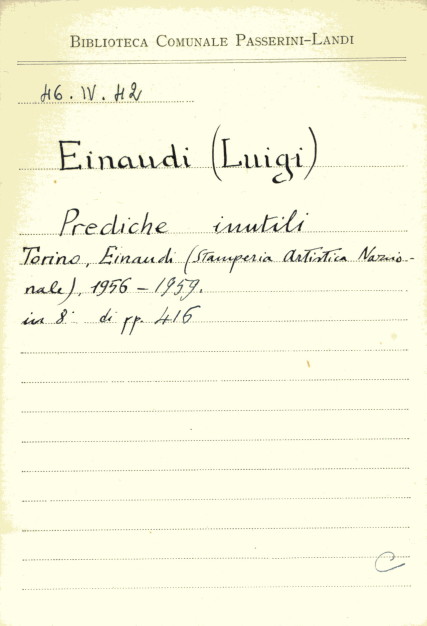 BIBLIOTECA COMUNALE PASSERINI-LANDI
46.IV.42
Einaudi (Luigi)
Prediche inutili
Torino, Einaudi (Stamperia Artistica Nazio-
nale), 1956-1959.
in 8° di pp. 416
C